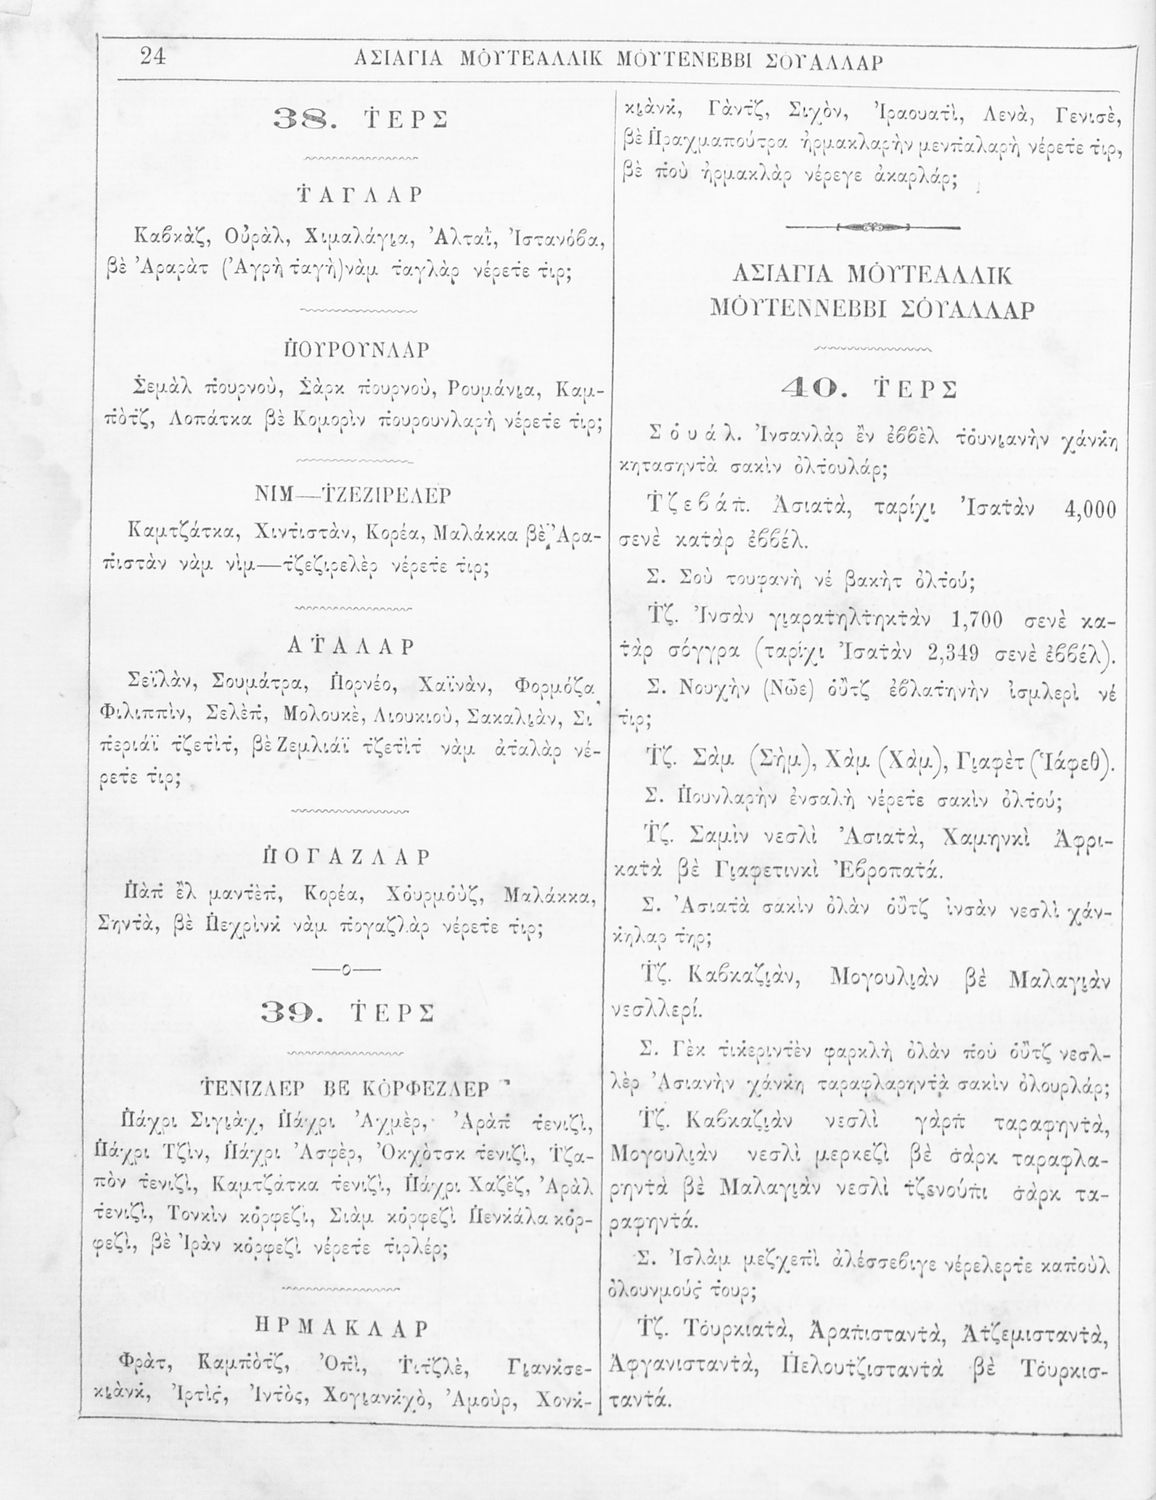 24 ΑΣΙΑΓΙΑ ΜΟΥ̇ΤΕΑΛΛΙΚ ΜΟΥ̇ΤΕΝΕΒΒΙ ΣΟΥΑΛΛΑΡ
38. Τ̇ΕΡΣ
Τ̇ΑΓΛΑΡ
Καβκὰζ, Οὐρὰλ, Χιμαλάγια, Ἀλταῒ, Ἰστανόβα,
βὲ Ἀραρὰτ (Ἀγρὴ τ̇αγὴ) νὰμ τ̇αγλὰρ νέρετ̇ε τ̇ιρ;
Π̇ΟΥΡΟΥΝΛΑΡ
Σ̇εμὰλ π̇ουρνοὺ, Σ̇ὰρκ π̇ουρνοὺ, Ρουμάνια, Καμ-
π̇ὸτζ, Λοπάτκα βὲ Κομορὶν π̇ουρουνλαρὴ νέρετ̇ε τ̇ιρ;
ΝΙΜ—Τ̇ΖΕΖΙΡΕΛΕΡ
Καμτζάτκα, Χιντ̇ιστὰν, Κορέα, Μαλάκκα βὲ Ἀρα-
π̇ιστὰν νὰμ νὶμ—τ̇ζεζιρελὲρ νέρετ̇ε τ̇ιρ;
ΑΤ̇ΑΛΑΡ
Σεϊλὰν, Σουμάτρα, Π̇ορνέο, Χαϊνὰν, Φορμόζα
Φιλιππὶν, Σελὲπ̇, Μολουκὲ, Λιουκιοὺ, Σακαλιὰν, Σι
π̇εριάϊ τ̇ζετ̇ὶτ̇, βὲ Ζεμλιάϊ τ̇ζετ̇ὶτ̇ νὰμ ἀτ̇αλὰρ νέ-
ρετ̇ε τ̇ιρ;
Π̇ΟΓΑΖΛΑΡ
Π̇ὰπ̇ ἒλ μαντ̇ὲπ̇, Κορέα, Χὀυρμοὺζ, Μαλάκκα,
Σηντ̇ὰ, βὲ Π̇εχρὶνκ̇ νὰμ π̇ογαζλὰρ νέρετ̇ε τ̇ιρ;
—ο—
39. Τ̇ΕΡΣ
Τ̇ΕΝΙΖΛΕΡ ΒΕ ΚΟ̇ΡΦΕΖΛΕΡ
Π̇άχρι Σιγιὰχ, Π̇άχρι Ἀχμὲρ, Ἀρὰπ̇ τ̇ενιζὶ,
Π̇άχρι Τζὶν, Π̇άχρι Ἀσφὲρ, Ὀκχὸτσκ τ̇ενιζὶ, Τ̇ζα-
πὸν τ̇ενιζὶ, Καμτζάτκα τ̇ενιζὶ, Π̇άχρι Χαζὲζ, Ἀρὰλ
τ̇ενιζὶ, Τονκὶν κὀρφεζὶ, Σιὰμ κὀρφεζὶ Π̇ενκ̇άλα κὀρ-
φεζὶ, βὲ Ἰρὰν κὀρφεζὶ νέρετ̇ε τ̇ιρλέρ;
ΗΡΜΑΚΛΑΡ
Φρὰτ, Καμπ̇ὸτ̇ζ, Ὀπ̇ὶ, Τ̇ιτζλὲ, Γιανκ̇σε-
κιὰνκ̇, Ἰρτὶς̇, Ἰντ̇ὸς, Χογιανκ̇χὸ, Ἀμοὺρ, Χονκ̇-
κιὰνκ̇, Γὰντ̇ζ, Σιχὸν, Ἰραουατὶ, Λενὰ, Γενισὲ,
βὲ Π̇ραχμαπούτρα ἠρμακλαρὴν μενπ̇αλαρὴ νέρετ̇ε τ̇ιρ,
βὲ π̇οὺ ἠρμακλὰρ νέρεγε ἀκαρλάρ;
ΑΣΙΑΓΙΑ ΜΟΥ̇ΤΕΑΛΛΙΚ
ΜΟΥ̇ΤΕΝΝΕΒΒΙ ΣΟΥ̇ΑΛΛΑΡ
40. Τ̇ΕΡΣ
Σὀυάλ. Ἰνσανλὰρ ἒν ἐββὲλ τ̇ὀυνιανὴν χάνκ̇η
κητασηντ̇ὰ σακὶν ὀλτ̇ουλάρ;
Τ̇ζεβάπ̇. Ἀσιατ̇ὰ, ταρίχι Ἰσατ̇ὰν 4,000
σενὲ κατ̇ὰρ ἐββέλ.
Σ. Σοὺ τουφανὴ νέ βακὴτ ὀλτ̇ού;
Τ̇ζ. Ἰνσὰν γιαρατ̇ηλτ̇ηκτ̇ὰν 1,700 σενὲ κα-
τ̇ὰρ σόγγρα (ταρίχι Ἰσατ̇ὰν 2,349 σενὲ ἐββέλ).
Σ. Νουχὴν (Νῶε) ὀὺτζ ἐβλατ̇ηνὴν ἰσμλερὶ νέ
τ̇ιρ;
Τ̇ζ. Σὰμ (Σὴμ), Χὰμ (Χὰμ), Γιαφὲτ (Ἰάφεθ).
Σ. Π̇ουνλαρὴν ἐνσαλὴ νέρετ̇ε σακὶν ὀλτ̇ού;
Τ̇ζ. Σαμὶν νεσλὶ Ἀσιατ̇ὰ, Χαμηνκὶ Ἀφρι-
κατ̇ὰ βὲ Γιαφετινκὶ Ἐβροπατ̇ά.
Σ. Ἀσιατ̇ὰ σακὶν ὀλὰν ὀὺτζ ἰνσὰν νεσλὶ χάν-
κ̇ηλαρ τ̇ηρ;
Τ̇ζ. Καβκαζιὰν, Μογουλιὰν βὲ Μαλαγιὰν
νεσλλερί.
Σ. Γὲκ τ̇ικ̇εριντ̇ὲν φαρκλὴ ὀλὰν π̇οὺ ὀὺτζ νεσλ-
λὲρ Ἀσιανὴν χάνκ̇η ταραφλαρηντ̇ὰ σακὶν ὀλουρλάρ;
Τ̇ζ. Καβκαζιὰν νεσλὶ γὰρπ̇ ταραφηντ̇ὰ,
Μογουλιὰν νεσλὶ μερκεζὶ βὲ σ̇ὰρκ ταραφλα-
ρηντ̇ὰ βὲ Μαλαγιὰν νεσλὶ τ̇ζενούπ̇ι σ̇ὰρκ τα-
ραφηντ̇ά.
Σ. Ἰσλὰμ μεζχεπ̇ὶ ἀλέσσεβιγε νέρελερτ̇ε καπ̇οὺλ
ὀλουνμούς̇ τ̇ουρ;
Τ̇ζ. Τὀυρκιατ̇ὰ, Ἀραπ̇ισταντ̇ὰ, Ἀτ̇ζεμισταντ̇ὰ,
Ἀφγανισταντ̇ὰ, Π̇ελουτ̇ζισταντ̇ὰ βὲ Τὀυρκισ-
ταντ̇ά.